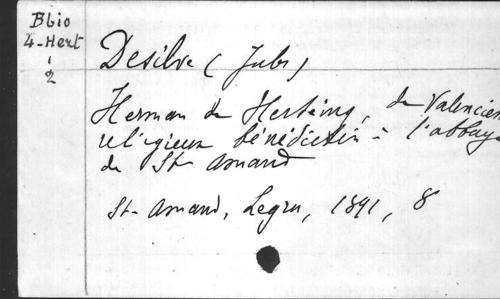 Bbio
4-Hert
-
2
Desilve (Jules)
Herman de Herteing, de Valencien
religieux bénédictin à l'abbaye
de St Amand
St-Amand, Legru, 1891, 8